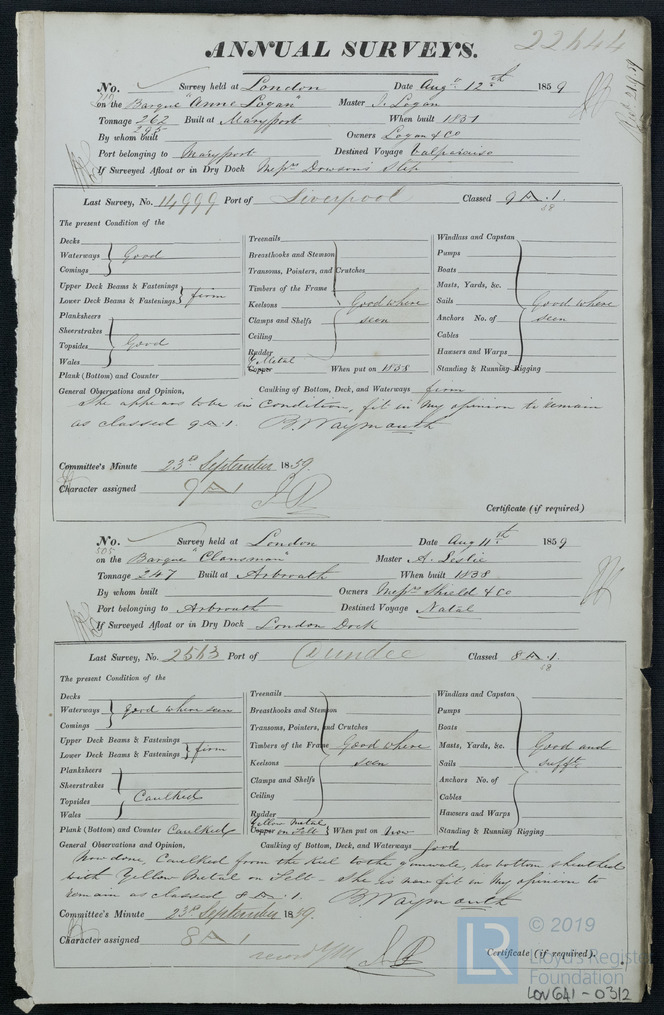 22644
ANNUAL SURVEYS.
No. Survey held at London Date Augt 12th 1859
on the Barque "Anne Logan" Master J. Logan
Tonnage 262 Built at Maryport When built 1851
295
By whom built Owners Logan & Co
Port belonging to Maryport Destined Voyage Valparaiso
If Surveyed Afloat or in Dry Dock Messrs Dowson's Slip
Last Survey, No. 14999 Port of Liverpool Classed 9 A .1.
58
The present Condition of the
Decks
Waterways Good
Comings
Upper Deck Beams & Fastenings
Lower Deck Beams & Fastenings firm
Planksheers
Sheerstrakes
Topsides Good
Wales
Plank (Bottom) and Counter
Treenails
Breasthooks and Stemson
Transoms, Pointers, and Crutches
Timbers of the Frame
Keelsons Good where
Clamps and Shelfs seen
Ceiling
Rudder
Y Metal
Copper When put on 1858
Windlass and Capstan
Pumps
Boats
Masts, Yards, &c.
Sails Good where
Anchors No. of seen
Cables
Hawsers and Warps
Standing & Running Rigging
General Observations and Opinion, Caulking of Bottom, Deck, and Waterways firm
She appears to be in Condition, fit in my opinion to remain
as classed 9 A 1. B. Waymouth
Committee's Minute 23rd September 1859.
Character assigned 9 A 1
Certificate (if required)
No. Survey held at London Date Aug 11th 1859
505
on the Barque "Clansman" Master A. Leslie
Tonnage 247 Built at Arbroath When built 1858
By whom built Owners Messrs Shield & Co
Port belonging to Arbroath Destined Voyage Natal
If Surveyed Afloat or in Dry Dock London Dock
Last Survey, No. 2563 Port of Dundee Classed 8 A .1.
58
The present Condition of the
Decks
Waterways good where seen
Comings
Upper Deck Beams & Fastenings
Lower Deck Beams & Fastenings firm
Planksheers
Sheerstrakes
Topsides Caulked
Wales
Plank (Bottom) and Counter Caulked
Treenails
Breasthooks and Stemson
Transoms, Pointers, and Crutches
Timbers of the Frame Good where
Keelsons seen
Clamps and Shelfs
Ceiling
Rudder
Yellow Metal
Copper on Felt When put on Now
Windlass and Capstan
Pumps
Boats
Masts, Yards, &c. Good and
Sails sufft
Anchors No. of
Cables
Hawsers and Warps
Standing & Running Rigging
General Observations and Opinion, Caulking of Bottom, Deck, and Waterways good
Now done, Caulked from the Keel to the gunwale, her bottom sheathed
with Yellow Metal on Felt - She is now fit in my opinion to
remain as classed 8 A .1. B. Waymouth
Committee's Minute 23rd September 1859.
Character assigned 8 A 1
Certificate (if required).
LR
© 2019
Lloyd's Register
Foundation
LOV641-0312